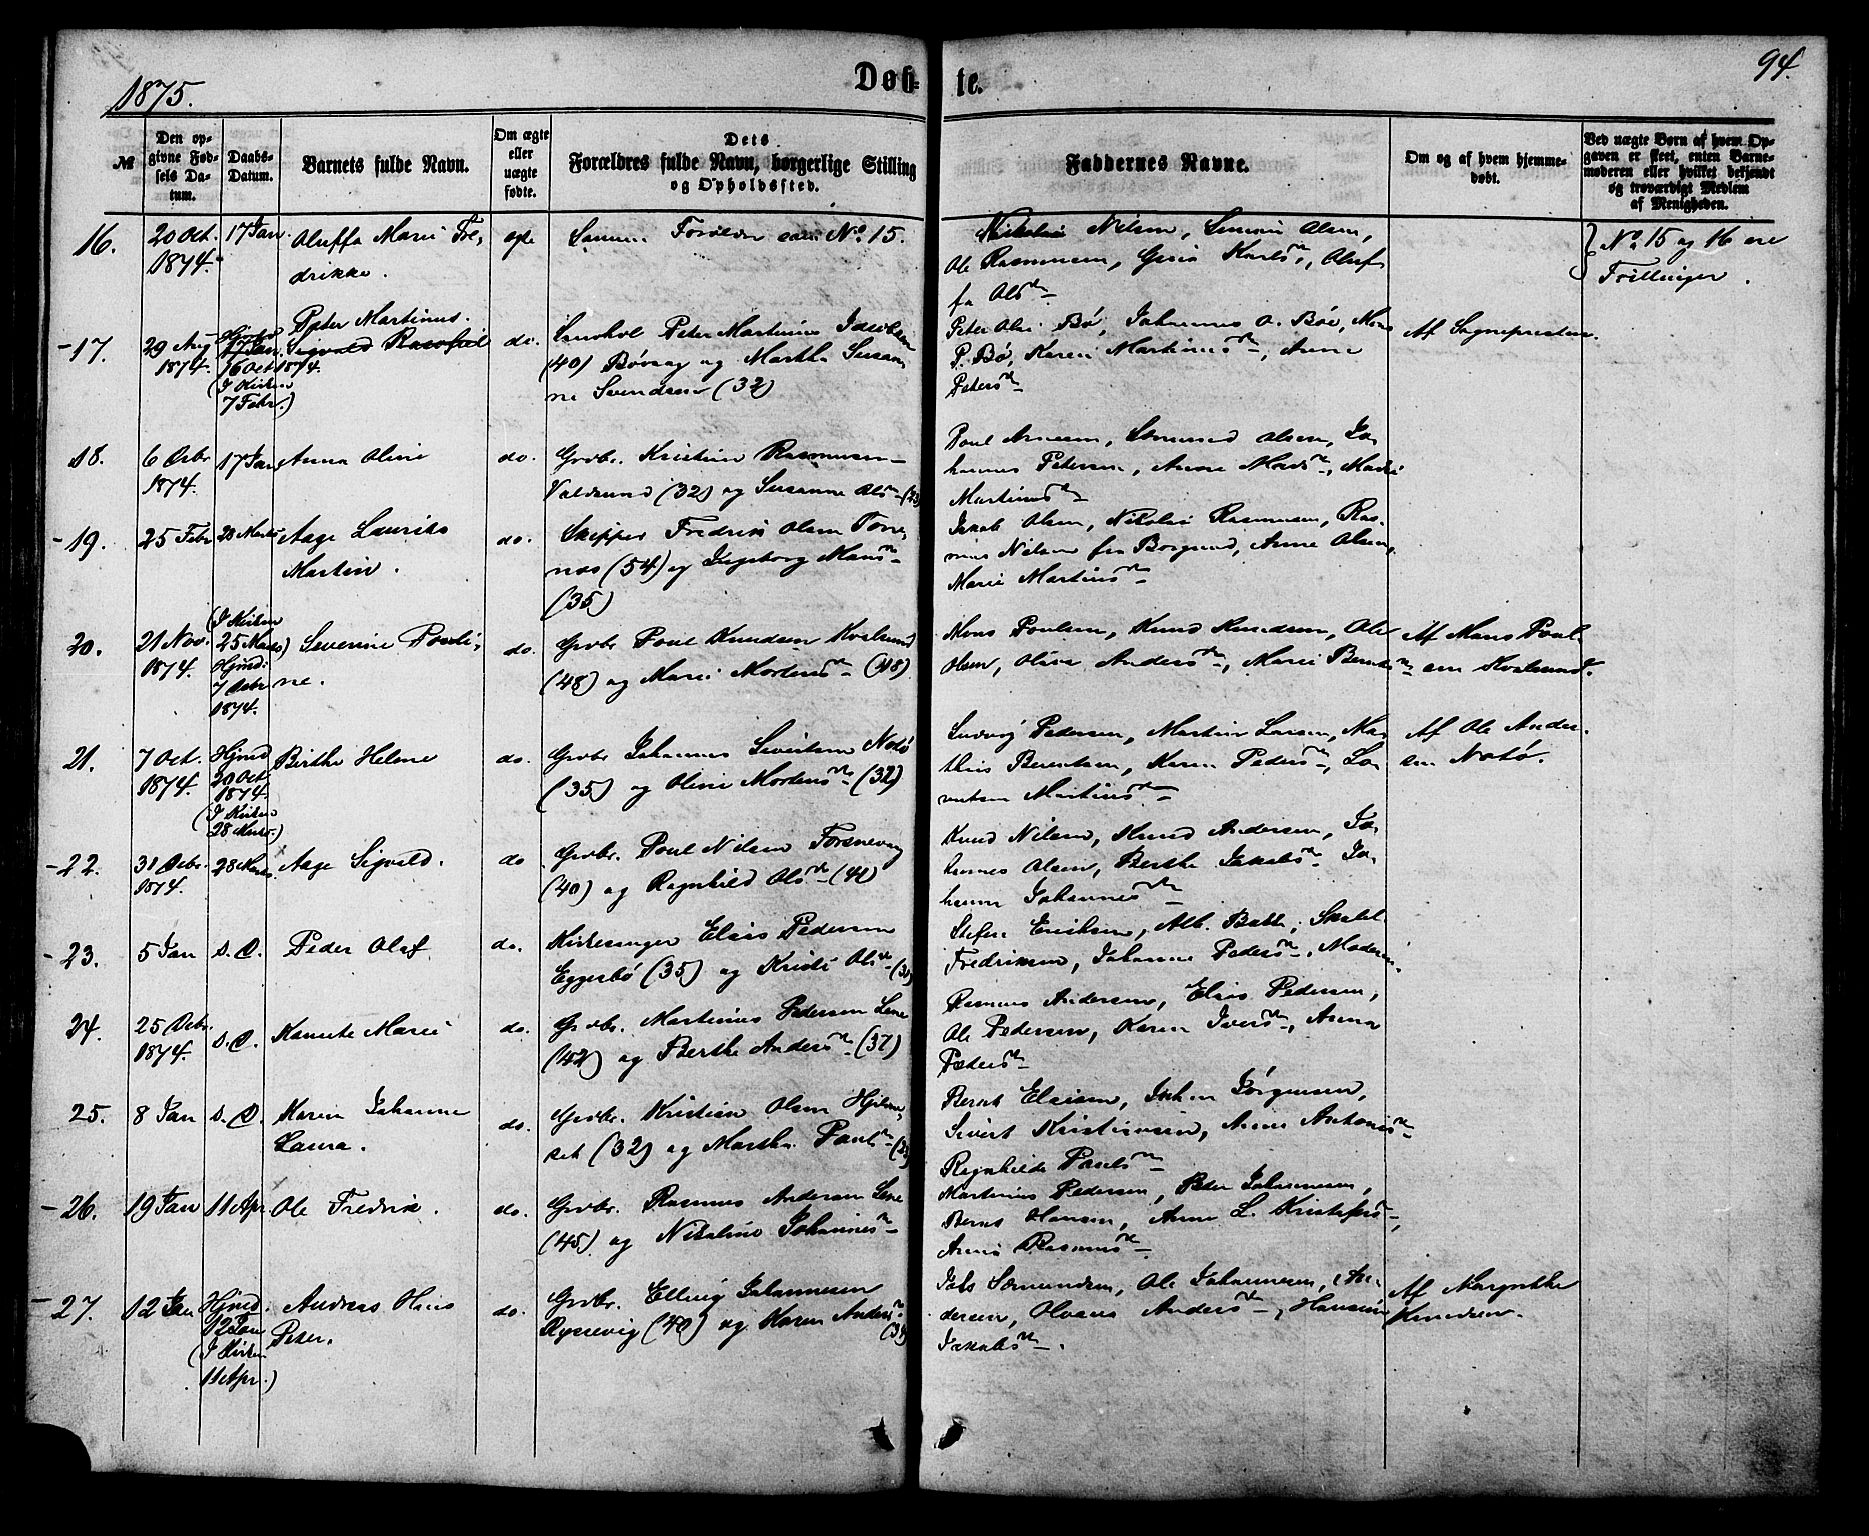 1875.
Døb-
te.
94.
№
Den op-
givne Fød-
sels Da-
tum.
Daabs-
Datum.
Barnets fulde Navn.
Om ægte
eller
uægte
fødte.
Dets
Forældres fulde Navn, borgerlige Stilling
og Opholdssted.
Faddernes Navne.
Om og af hvem hjemme-
døbt.
Ved uægte Børn af hvem Op-
gaven er skeet, enten Barne-
moderen eller hvilket bekjendt
og troværdigt Medlem
af Menigheden.
16.
20 Oct.
1874.
17 Jan
Oluffa Marie Fre-
drikke.
Samme Forældre som No 15.
Nikolai Nilsen, Simon Olsen,
Ole Rasmussen,
No 15 og 16 ere
Trillinger.
17.
29 Aug
1874.
Hjmd
17 Jan.
16 Oct 1874.
(I Kirken
7 Febr.)
Peter Martinus.
Sigvald
do.
Peter Martinus
(40) og Martha Susan
ne Svendsen (32)
Peter Olsen Bø, Johannes O. Bøe, Mons
P. Bø, Karen Martinusd., Anne
Petersd.
Af Sognepresten.
18.
6 Decbr
1874.
17 Jan
Anna Oline
do.
Grdbr. Kristian Rasmussen
Voldsund (32) og Susanne Olsd.
Poul Arnesen, Sæmund Olsen, Jo-
hannes Petersen, Anne Monsd., Marie
Martinusd.
19.
25 Febr
28 Marts
Aage Lauritz
Martin.
do.
Skipper Fredrik Olsen Torve-
næs (54) og Ingeborg Monsd.
(35)
Jakob Olsen, Nikolai Rasmussen, Ras-
mus Nilsen fra Borgund, Anne Olsen,
Marie Martinusd.
20.
21 Nov.
1874.
(I Kirken
25 Marts)
Hjmd:
7 Decbr
1874.
Severine Pouli-
ne.
do.
Grdbr. Poul Knudsen Kvalsund
(48) og Marie Mortensd. (48)
Mons Poulsen, Knud Knudsen, Ole
Olsen, Olina Andersd., Marie Berntsd.
Af Mons Poul
sen Kvalsund.
21.
7 Oct.
1874.
Hjmd
20 Oct.
1874.
(I Kirken
28 Marts.)
Birthe Helene
do.
Grdbr. Johannes Sivertsen Notø
(35) og Oline Mortensd. (32)
Ludvig Pedersen, Martin Larsen, Ma-
thias Berentsen, Karen Pedersd., Lo-
Martinusd.
Af Ole Ander-
sen Notø.
22.
31 Decbr.
1874.
28 Marts.
Aage Sigvald.
do
Grdbr. Poul Nilsen Torsnevaag
(40) og Ragnhild Olsd. (41)
Knud Nilsen, Knud Andersen, Jo-
hannes Olsen, Berthe Jakobsd. Jo-
hanne Johannesd.
23.
5 Jan
s. D.
Peder Olaf
do.
Kirkesanger Elias Pedersen
Eggesbø (35) og Kristi Olsd.
Steffen Eriksen, Alb.
Fredriksen, Johanne Pedersd., Moderen.
24.
25 Decbr.
1874.
s. D.
Kanute Marie
do.
Grdbr. Martinus Pedersen Leine
(42) og Berthe Andersd. (37)
Rasmus Andersen, Elias Pedersen,
Ole Pedersen, Karen Iversd., Anna
Pedersd.
25.
8 Jan
s. D.
Karen Johanne
Laura.
do.
Grdbr. Kristian Olsen Hjelme-
set (32) og Martha Poulsd.
Bernt Eliasen, Johan Jørgensen,
Sivert Kristiansen, Anne Antonisd.
Ragnhilde Poulsd.
26.
19 Jan
11 Apr.
Ole Fredrik.
do.
Grdbr. Rasmus Andersen Leine
(45) og Nikoline Johannesd.
Martinus Pedersen, Peter Johannesen,
Bernt Hansen, Anne L. Kristofersd.,
Anne Rasmusd.
27.
12 Jan
Hjmd.
12 Jan
(I Kirken
11 Apr.)
Andreas Hans
Peter.
do.
Grdbr. Elling Johannesen
Ryssevig (40) og Karen Andersd.
(34)
Jets Sæmundsen, Ole Johannesen, An-
dersen, Andersd., Hansine
Jakobsd.
Af Margrethe
Knudsen.